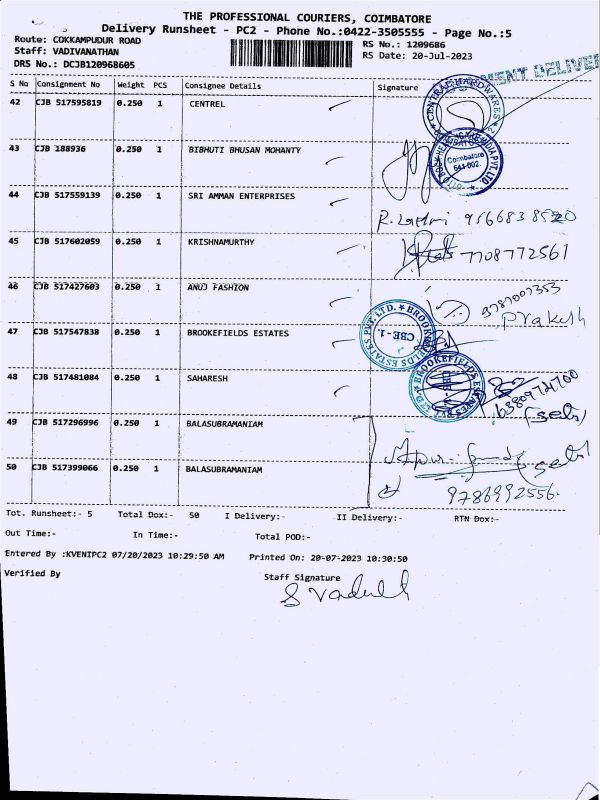 THE PROFESSIONAL COURIERS, COIMBATORE
Delivery Runsheet - PC2 - Phone No.:0422-3505555 - Page No.:5
Route: COKKAMPUDUR ROAD
Staff: VADIVANATHAN
DRS No.: DCJB120968605
RS No.: 1209686
RS Date: 20-Jul-2023
S No Consignment No Weight PCS Consignee Details Signature
42 CJB 517595819 0.250 1 CENTREL
CENTRAL HARDWARES
43 CJB 188936 0.250 1 BIBHUTI BHUSAN MOHANTY
Coimbatore 641-002.
44 CJB 517559139 0.250 1 SRI AMMAN ENTERPRISES
9566838520
45 CJB 517602059 0.250 1 KRISHNAMURTHY
7708772561
46 CJB 517427603 0.250 1 ANUJ FASHION
9787007353
Prakash
47 CJB 517547838 0.250 1 BROOKEFIELDS ESTATES
BROOKEFIELDS ESTATES PVT. LTD.
CBE - 1.
48 CJB 517481084 0.250 1 SAHARESH
BROOKEFIELDS ESTATES
49 CJB 517296996 0.250 1 BALASUBRAMANIAM
50 CJB 517399066 0.250 1 BALASUBRAMANIAM
9786992556
Tot. Runsheet:- 5 Total Dox:- 50 I Delivery:- II Delivery:- RTN Dox:-
Out Time:- In Time:- Total POD:-
Entered By :KVENIPC2 07/20/2023 10:29:50 AM Printed On: 20-07-2023 10:30:50
Verified By Staff Signature